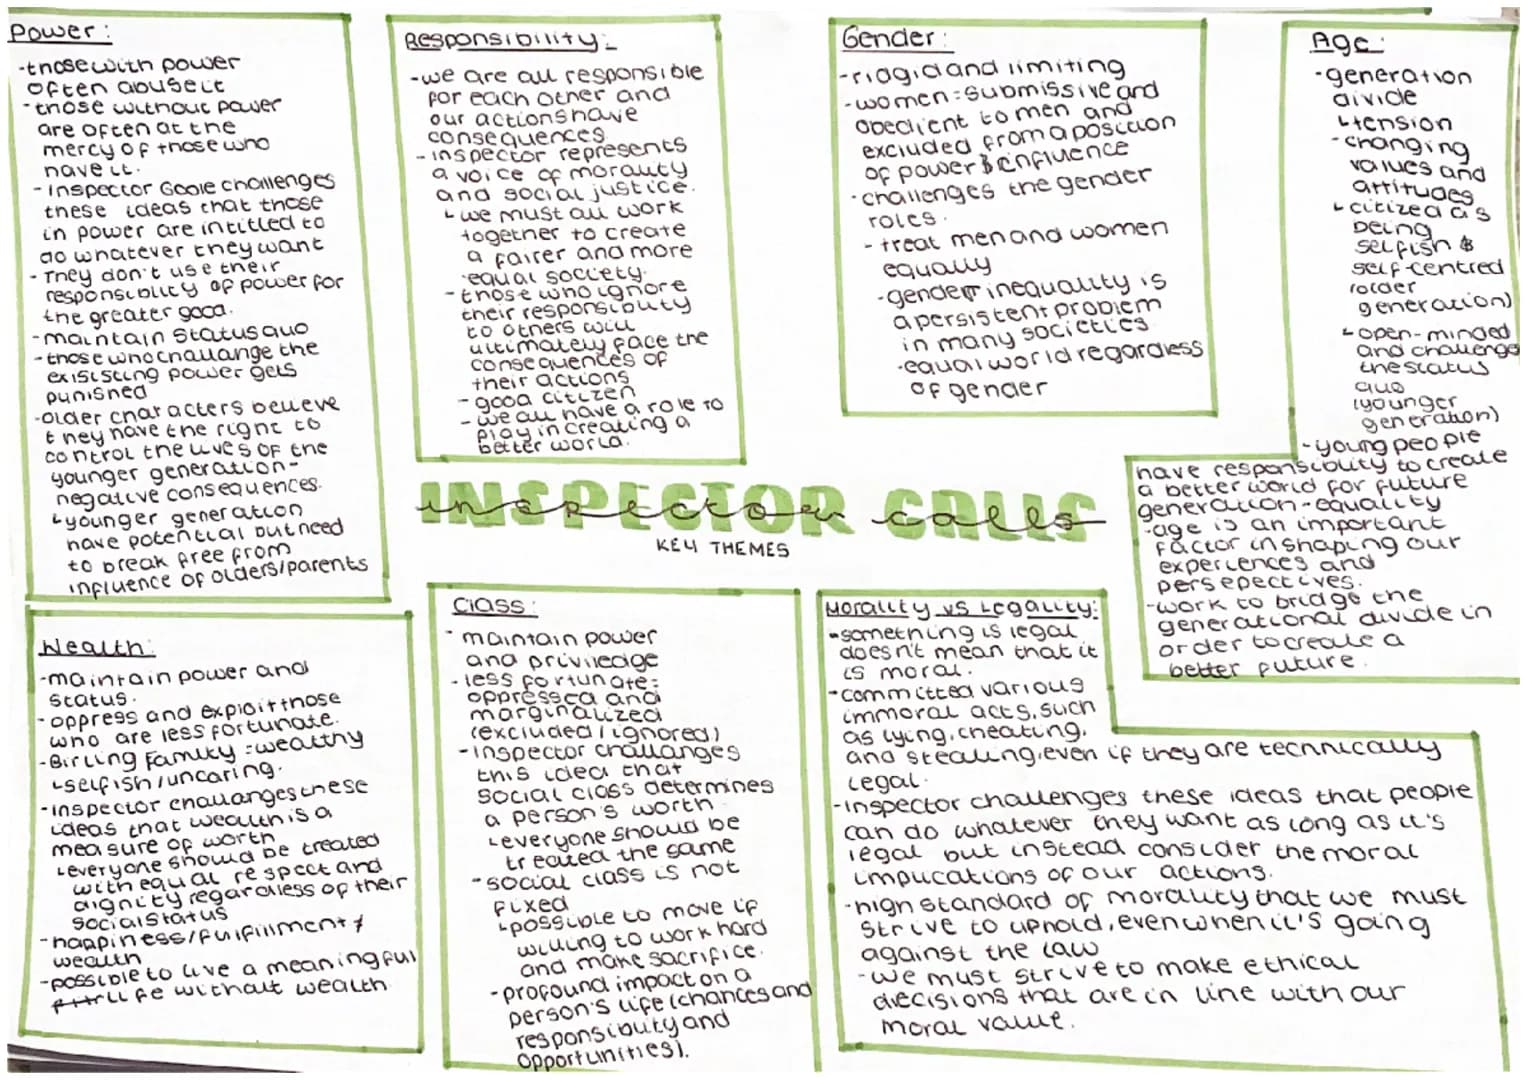 Power:
-those with power
often abuse it
-those without power
are often at the
mercy of those who
have it.
-Inspector Goole challenges
these ideas that those
in power are intitled to
do whatever they want
-They don't use their
responsibility of power for
the greater good.
-maintain status quo
-those who challange the
exisisting power gets
punished
-older characters believe
they have the right to
control the lives of the
younger generation-
negative consequences.
↳younger generation
have potential but need
to break free from
influence of olders/parents
Responsibility:
-we are all responsible
for each other and
our actions have
consequences
-inspector represents
a voice of morality
and social justice.
↳we must all work
together to create
a fairer and more
equal society.
-those who ignore
their responsibility
to others will
ultimately face the
consequences of
their actions
-good citizen
-we all have a role to
play in creating a
better world.
Gender:
-riagid and limiting
-women=submissive and
obedient to men and
excluded from a position
of power & influence
-challenges the gender
roles.
-treat men and women
equally
-gender inequality is
a persistent problem
in many societies
-equal world regardless
of gender
Age:
-generation
divide
↳tension
-changing
values and
attitudes
↳citized as
being
selfish &
self-centred
(older
generation)
↳open-minded
and challenge
the status
quo
(younger
generation)
-young people
have responsibility to create
a better world for future
generation-equality
-age is an important
factor in shaping our
experiences and
persepectives.
-work to bridge the
generational divide in
order to create a
better future.
INSPECTOR CALLS
inspector calls
KEY THEMES
Wealth:
-maintain power and
status.
-oppress and exploit those
who are less fortunate.
-Birling Family=wealthy
↳selfish/uncaring.
-inspector challanges these
ideas that wealth is a
measure of worth
↳everyone should be treated
with equal respect and
dignity regardless of their
social status
-happiness/fulfillment ≠
wealth
-possible to live a meaningful
life without wealth
Class:
-maintain power
and priviledge
-less fortunate=
oppressed and
marginalized
(excluded/ignored)
-Inspector challanges
this idea that
social class determines
a person's worth
↳everyone should be
treated the same
-social class is not
fixed
↳possible to move if
willing to work hard
and make sacrifice.
-profound impact on a
person's life (chances and
responsibility and
opportunities).
Morality vs Legality:
-something is legal
doesn't mean that it
is moral.
-committed various
immoral acts, such
as lying, cheating,
and stealing, even if they are technically
legal.
-inspector challenges these ideas that people
can do whatever they want as long as it's
legal but instead consider the moral
implications of our actions.
-high standard of morality that we must
strive to uphold, even when it's going
against the law
-we must strive to make ethical
decisions that are in line with our
moral value.